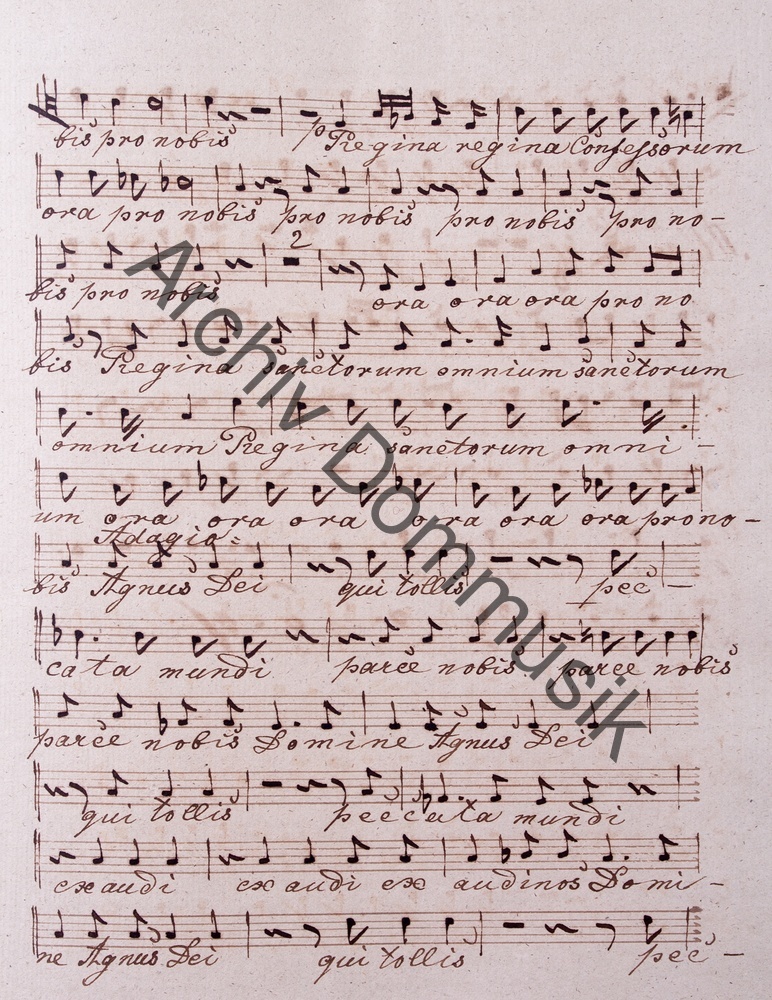 bis pro nobis p Regina regina Confessorum
ora pro nobis pro nobis pro nobis pro no-
2
bis pro nobis ora ora ora pro no
bis Regina sanctorum omnium sanctorum
omnium Regina sanctorum omni-
um ora ora ora ora ora ora pro no-
Adagio:
bis Agnus Dei qui tollis pec-
cata mundi parce nobis parce nobis
parce nobis Domine Agnus Dei
qui tollis peccata mundi
exaudi exaudi ex audi nos Domi-
ne Agnus Dei qui tollis pec-
Archiv Dommusik